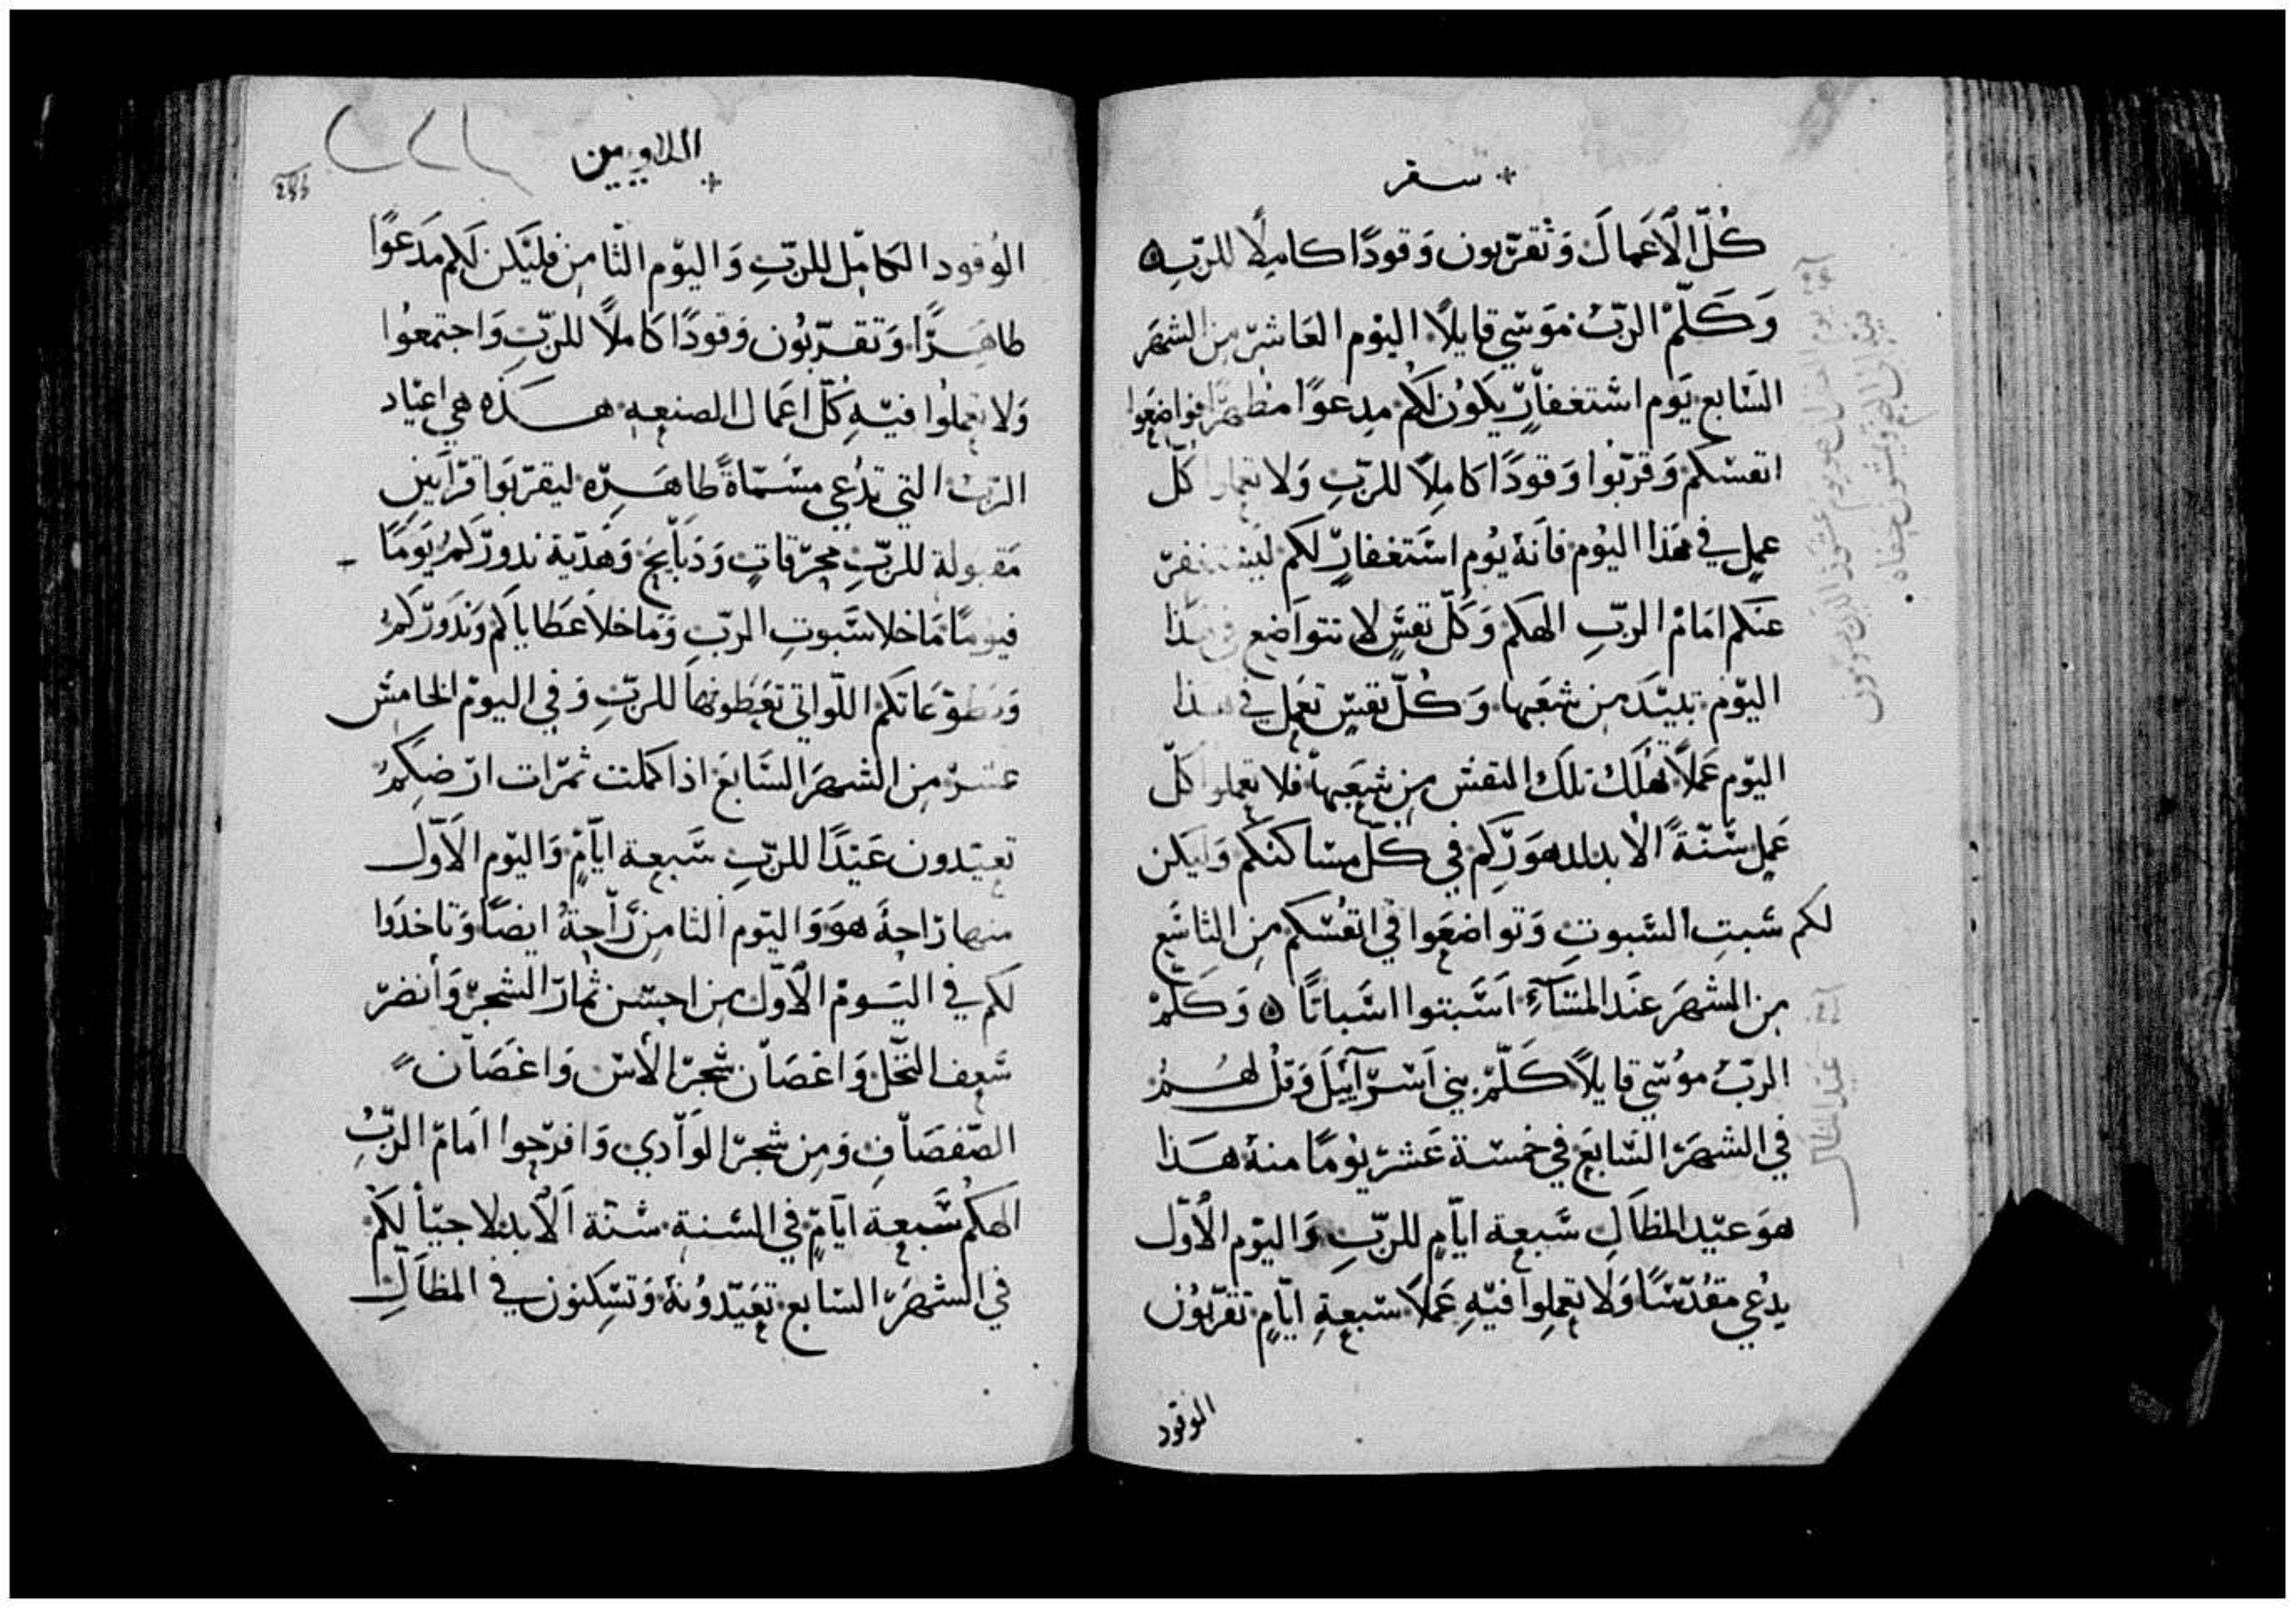 سفر
كُلّ الاَعمال وَتقرّبون وَقودًا كاملًا للربّ
وَكَلّم الربّ موَسي قايلًا اليوْم العَاشر من الشهَر
السَّابع يَوم استغفارٍ يكوُن لكُم مدعوًا مطهرًا فواضعَوا
انفسكم وَقرّبوا وَقودًا كاملًا للربّ وَلا تعملوا كُلّ
عملٍ في هَذا اليوُم فانَهُ يوُم استَغفارٍ لكم ليستغفرّ
عنَكم امَامْ الربّ الهكم وَكلّ نفسٍ لا تتواَضع في هذا
اليوْم تبيدَ من شعبها وَكُلّ نفسٍ تعمل في هذا
اليوْم عَملًا تهُلَك تلك النفس من شعَبها فلا تعملوا كلّ
عَملٍ سُنّةً الابد لدهوَركم في كلّ مساكنكم وَليَكن
لكم سَبتِ السَّبوت وَتواضعَوا في انفُسكم من التاسَع
من الشهَر عنَد المسَآءِ اَسَبتوا اسَباتًا وَكَلّمْ
الربّ موُسي قايلًا كَلّم بني اَسرآئيل وَقل لهُمُ
في الشهَر السَّابع في خمسة عَشر يوُمًا منهُ هَذا
هوَ عيّد المظاَل سَبعة ايّامٍ للربّ وَاليوْم الاُوّل
يدُعي مقدّسًا وَلا تعملوا فيّه عَملًا سبعة ايّامٍ تقرّبوُن
الوقود
عيد المظال
اللاويين
الوُقود الكامّل للربّ وَاليوْم الثامن فليَكن لكم مَدعوًا
طاهرًا وَتقرّبوُن وَقودًا كاملًا للربّ وَاجتمعوُا
وَلا تعملوُا فيّه كُلّ اعَمال الصنعه هذه هي اعيَاد
الربّ التي تدُعي مسَمّاةً طاهَرّه ليقرّبوَا قرَابين
مَقبولة للربّ محرّقاتٍ وَذبَآيح وَهدَيّة ندورَكمُ يَوَمًا
فيوَمًا مَا خلا سَبوت الربّ وَمَا خلاَ عَطاياكم وَندَورَكمُ
وَتطوّعاتكم اللّواتي تعَطونها للربّ وَفي اليومْ الخامسَ
عشرّ من الشهرَ السَّابعَ اذا كملت ثمرّات ارّضكمُ
تعيّدون عَيدًا للربّ سَبعة ايّامٍ وَاليوْم الاَوّل
منها رَاحةَ هوَ وَاليوْم الثامن رَاحةُ ايضًا وَتاخذَوا
لكم في اليَومْ الاَوّل من احسن ثمارَ الشجرّ وَانضرّ
سَعف النّخل وَاغصَان شَجرّ الاسّ وَاغصَاّن
الصّفصَاّف وَمن شجرّ الوَاّدي وَافرّحوا امَامّ الربّ
الهكُم سَبعة ايّامٍ في السّنة سُنّة الاَبد لاجيّالكم
في الشهَرّ السّابع تعَيّدوُنهُ وَتسّكنون في المظاَلّ